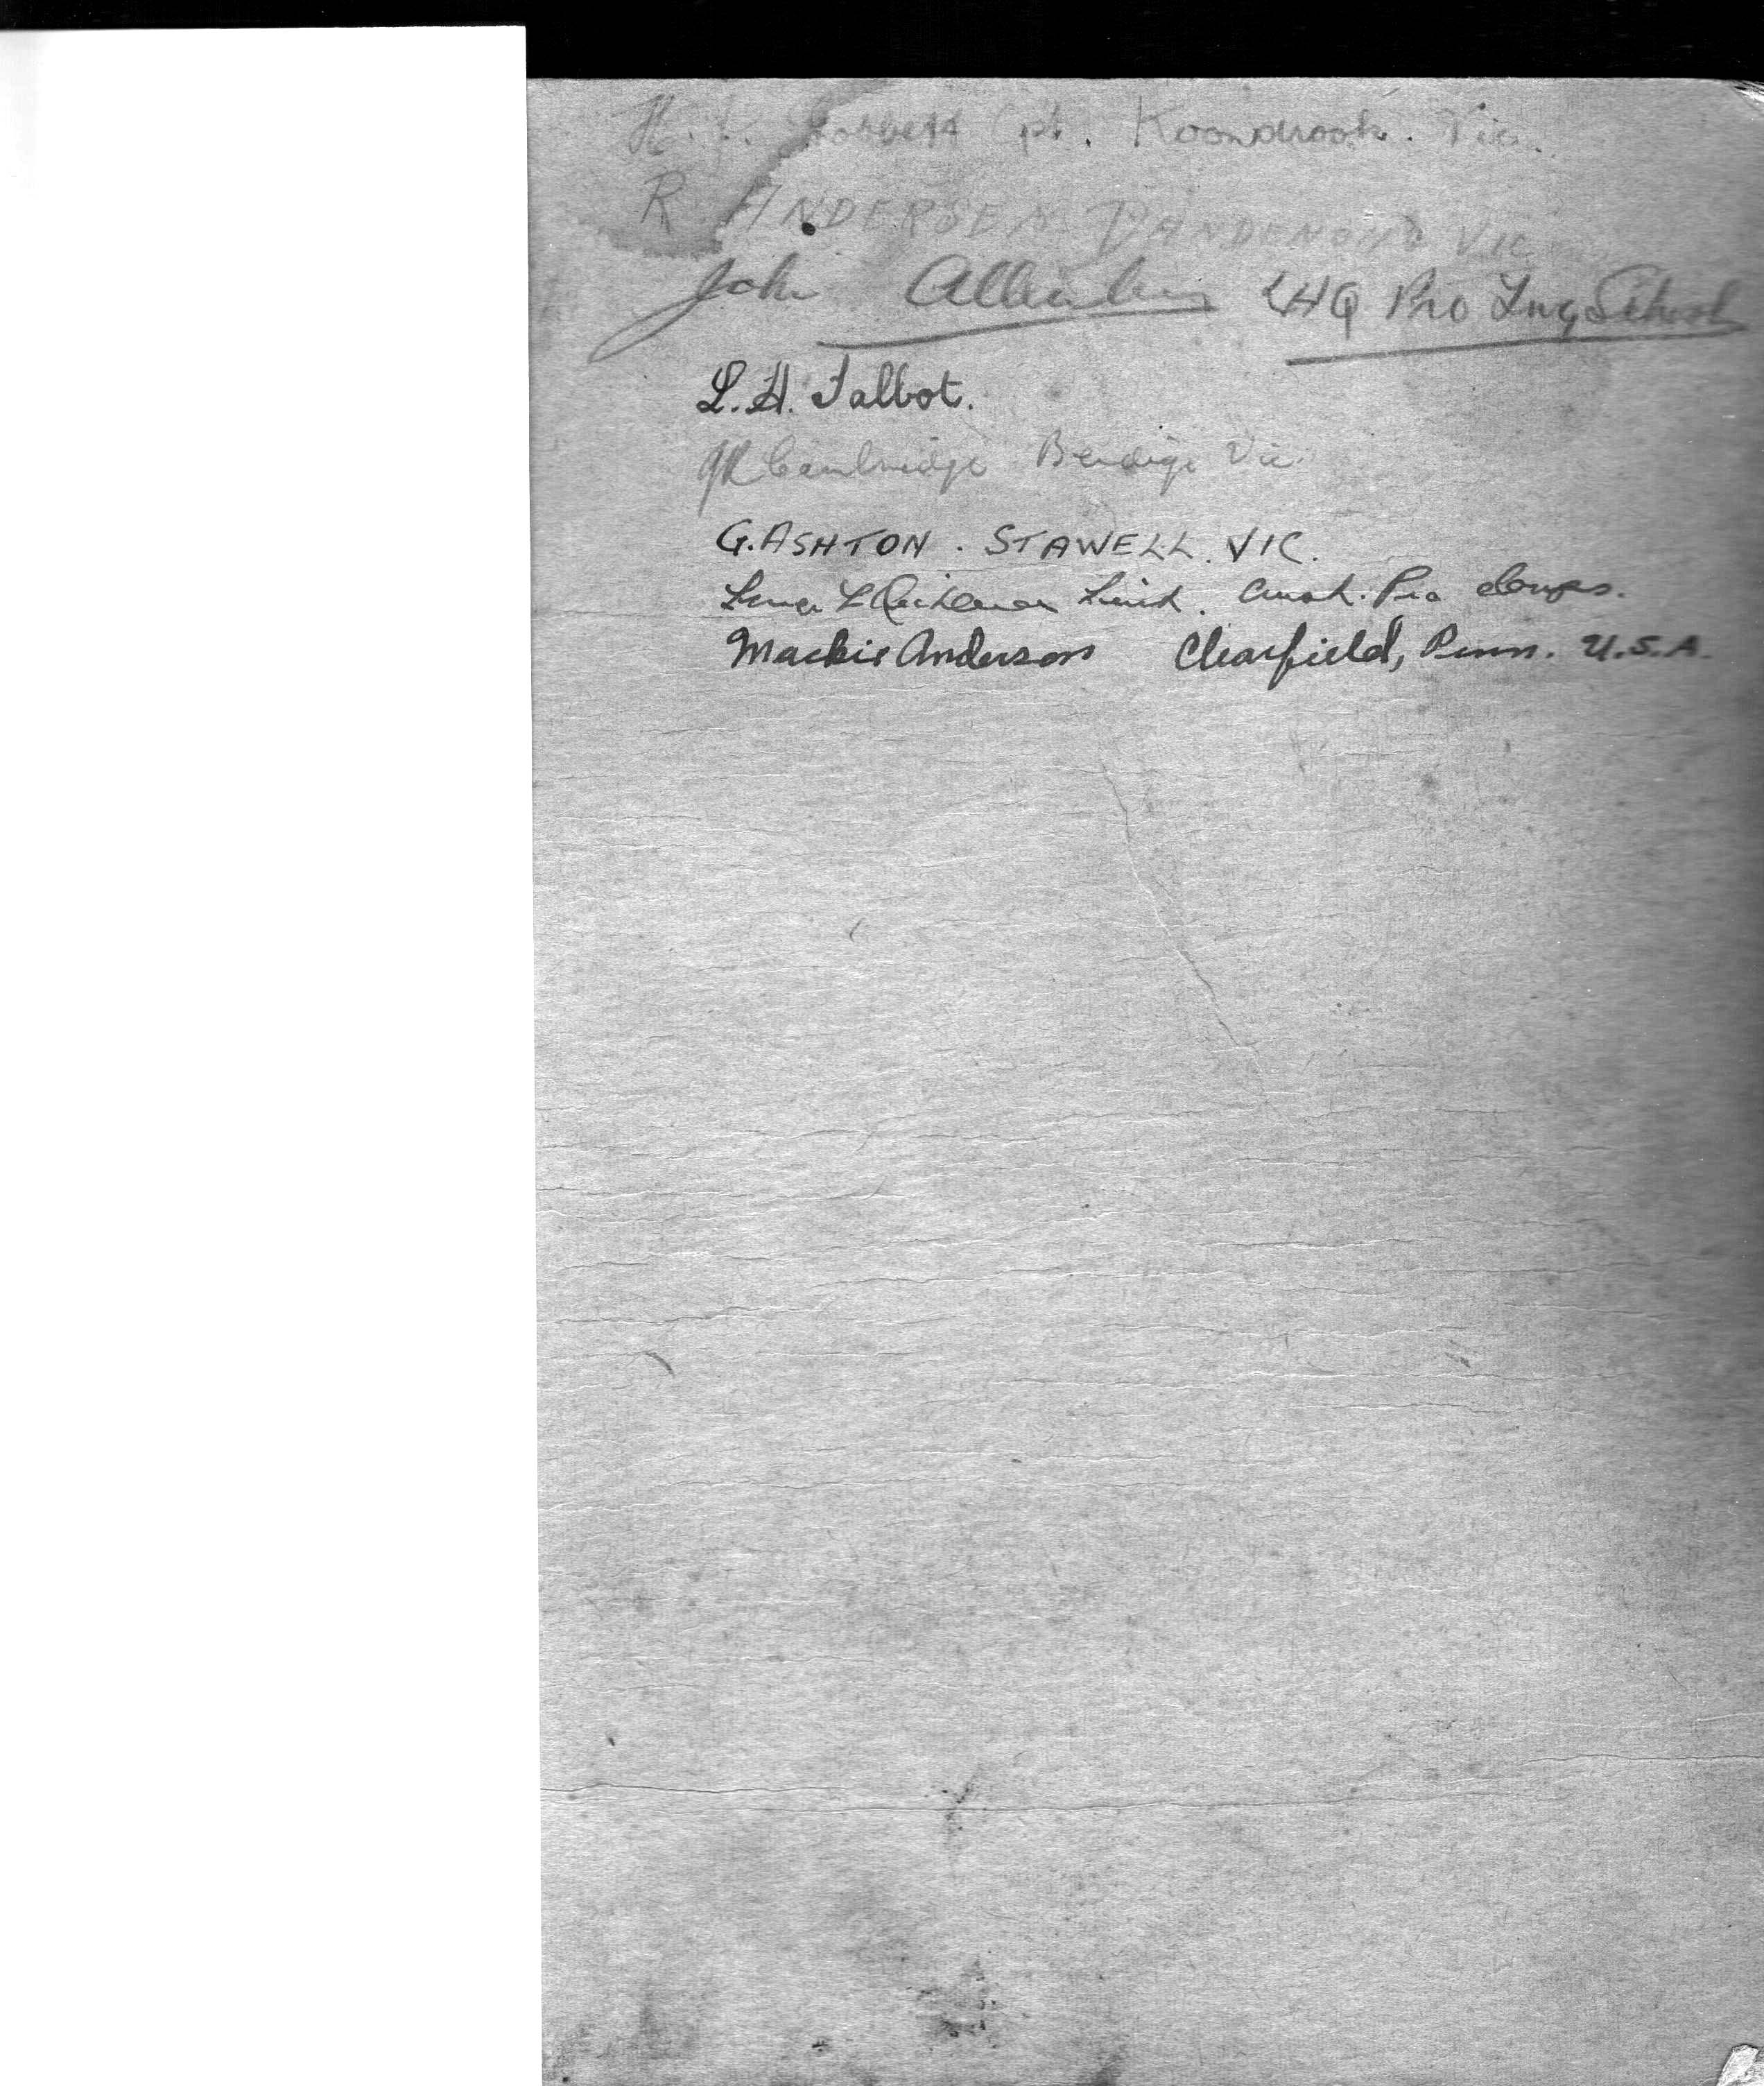 H. Cpl. Koondrook. Vic.
R. ANDERSEN DANDENONG VIC
John LHQ Pro Trng School
L. H. Talbot.
Cambridge Bendigo Vic
G. ASHTON. STAWELL. VIC.
Lieut. Aust. Pro Corps.
Mackie Anderson Clearfield, Penn. U.S.A.